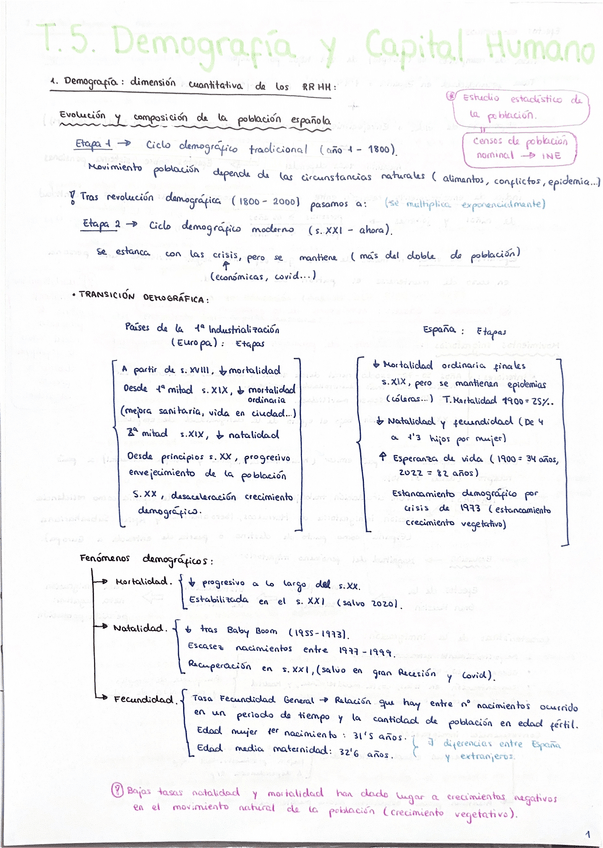 T.5. Demografía y Capital Humano
1. Demografía: dimensión cuantitativa de los RRHH:
Estudio estadístico de
la población.
Censos de población
nominal → INE
Evolución y composición de la población española
Etapa 1 → Ciclo demográfico tradicional (año 1 - 1800).
Movimiento población depende de las circunstancias naturales (alimentos, conflictos, epidemia...)
! Tras revolución demográfica (1800 - 2000) pasamos a: (se multiplica exponencialmente)
Etapa 2 → Ciclo demográfico moderno (s. XXI - ahora).
Se estanca con las crisis, pero se mantiene (más del doble de población)
↑
(económicas, covid...)
• TRANSICIÓN DEMOGRÁFICA:
Países de la 1ª Industrialización
(Europa): Etapas
A partir de s. XVIII, ↓ mortalidad
Desde 1ª mitad s. XIX, ↓ mortalidad
ordinaria
(mejora sanitaria, vida en ciudad...)
2ª mitad s. XIX, ↓ natalidad
Desde principios s. XX, progresivo
envejecimiento de la población
S. XX, desaceleración crecimiento
demográfico.
España: Etapas
↓ Mortalidad ordinaria finales
s. XIX, pero se mantienen epidemias
(cóleras...) T. Mortalidad 1900 = 25%.
↓ Natalidad y fecundidad (De 4
a 1'3 hijos por mujer)
↑ Esperanza de vida (1900 = 34 años,
2022 = 82 años)
Estancamiento demográfico por
crisis de 1973 (estancamiento
crecimiento vegetativo)
Fenómenos demográficos:
→ Mortalidad. ↓ progresivo a lo largo del s. XX.
Estabilizada en el s. XXI (salvo 2020).
→ Natalidad. ↓ tras Baby Boom (1955 - 1973).
Escasez nacimientos entre 1977 - 1999.
Recuperación en s. XXI, (salvo en gran Recesión y covid).
→ Fecundidad. Tasa Fecundidad General → Relación que hay entre nº nacimientos ocurrido
en un periodo de tiempo y la cantidad de población en edad fértil.
Edad mujer 1er nacimiento: 31'5 años.
Edad media maternidad: 32'6 años.
∃ diferencias entre España
y extranjeros.
Bajas tasas natalidad y mortalidad han dado lugar a crecimientos negativos
en el movimiento natural de la población (crecimiento vegetativo).
1